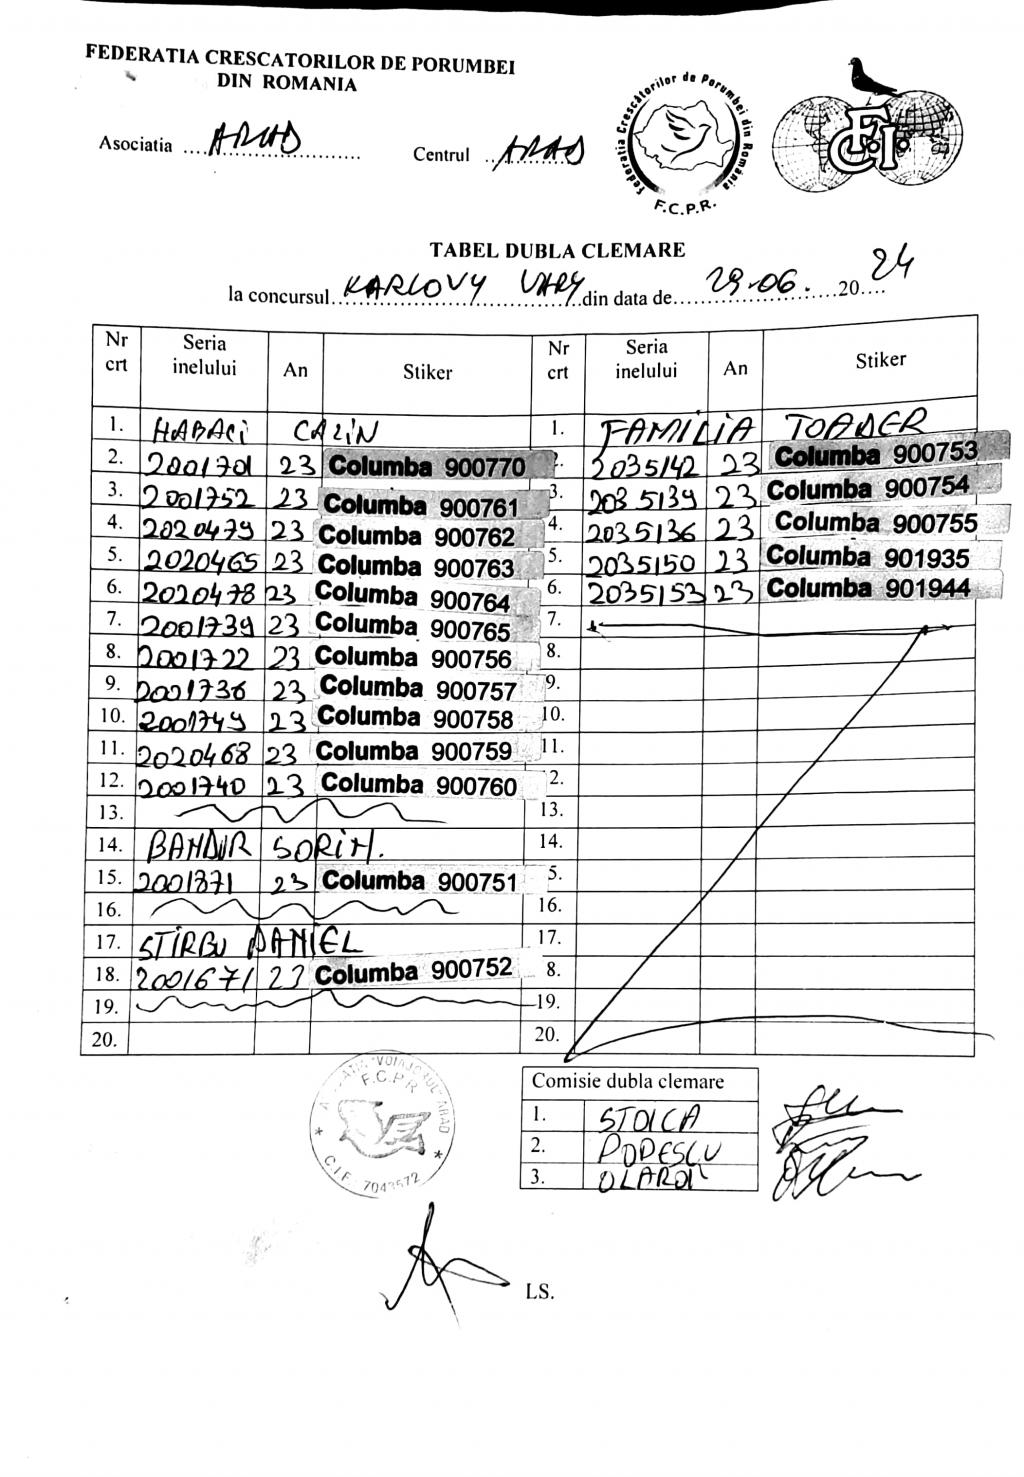 FEDERATIA CRESCATORILOR DE PORUMBEI
DIN ROMANIA
Asociatia ....ARAD....................
Centrul ..ARAD
Federatia Crescătorilor de Porumbei din România
F.C.P.R.
F.C.I.
TABEL DUBLA CLEMARE
la concursul..KARLOVY VARY..din data de......29.06.......20..24
Nr crt Seria inelului An Stiker Nr crt Seria inelului An Stiker
1. HABACI CALIN 1. FAMILIA TOADER
2. 2001701 23 Columba 900770 2. 2035142 23 Columba 900753
3. 2001752 23 Columba 900761 3. 2035139 23 Columba 900754
4. 2020479 23 Columba 900762 4. 2035136 23 Columba 900755
5. 2020465 23 Columba 900763 5. 2035150 23 Columba 901935
6. 2020478 23 Columba 900764 6. 2035153 23 Columba 901944
7. 2001739 23 Columba 900765 7.
8. 2001722 23 Columba 900756 8.
9. 2001736 23 Columba 900757 9.
10. 2001749 23 Columba 900758 10.
11. 2020468 23 Columba 900759 11.
12. 2001740 23 Columba 900760 2.
13. 13.
14. BANDUR SORIN. 14.
15. 2001871 23 Columba 900751 5.
16. 16.
17. STIRBU DANIEL 17.
18. 2001671 23 Columba 900752 8.
19. 19.
20. 20.
"VOIAJORUL" ARAD
F.C.P.R
C.I.F. 7043572
Comisie dubla clemare
1. STOICA
2. POPESCU
3. OLARDU
LS.